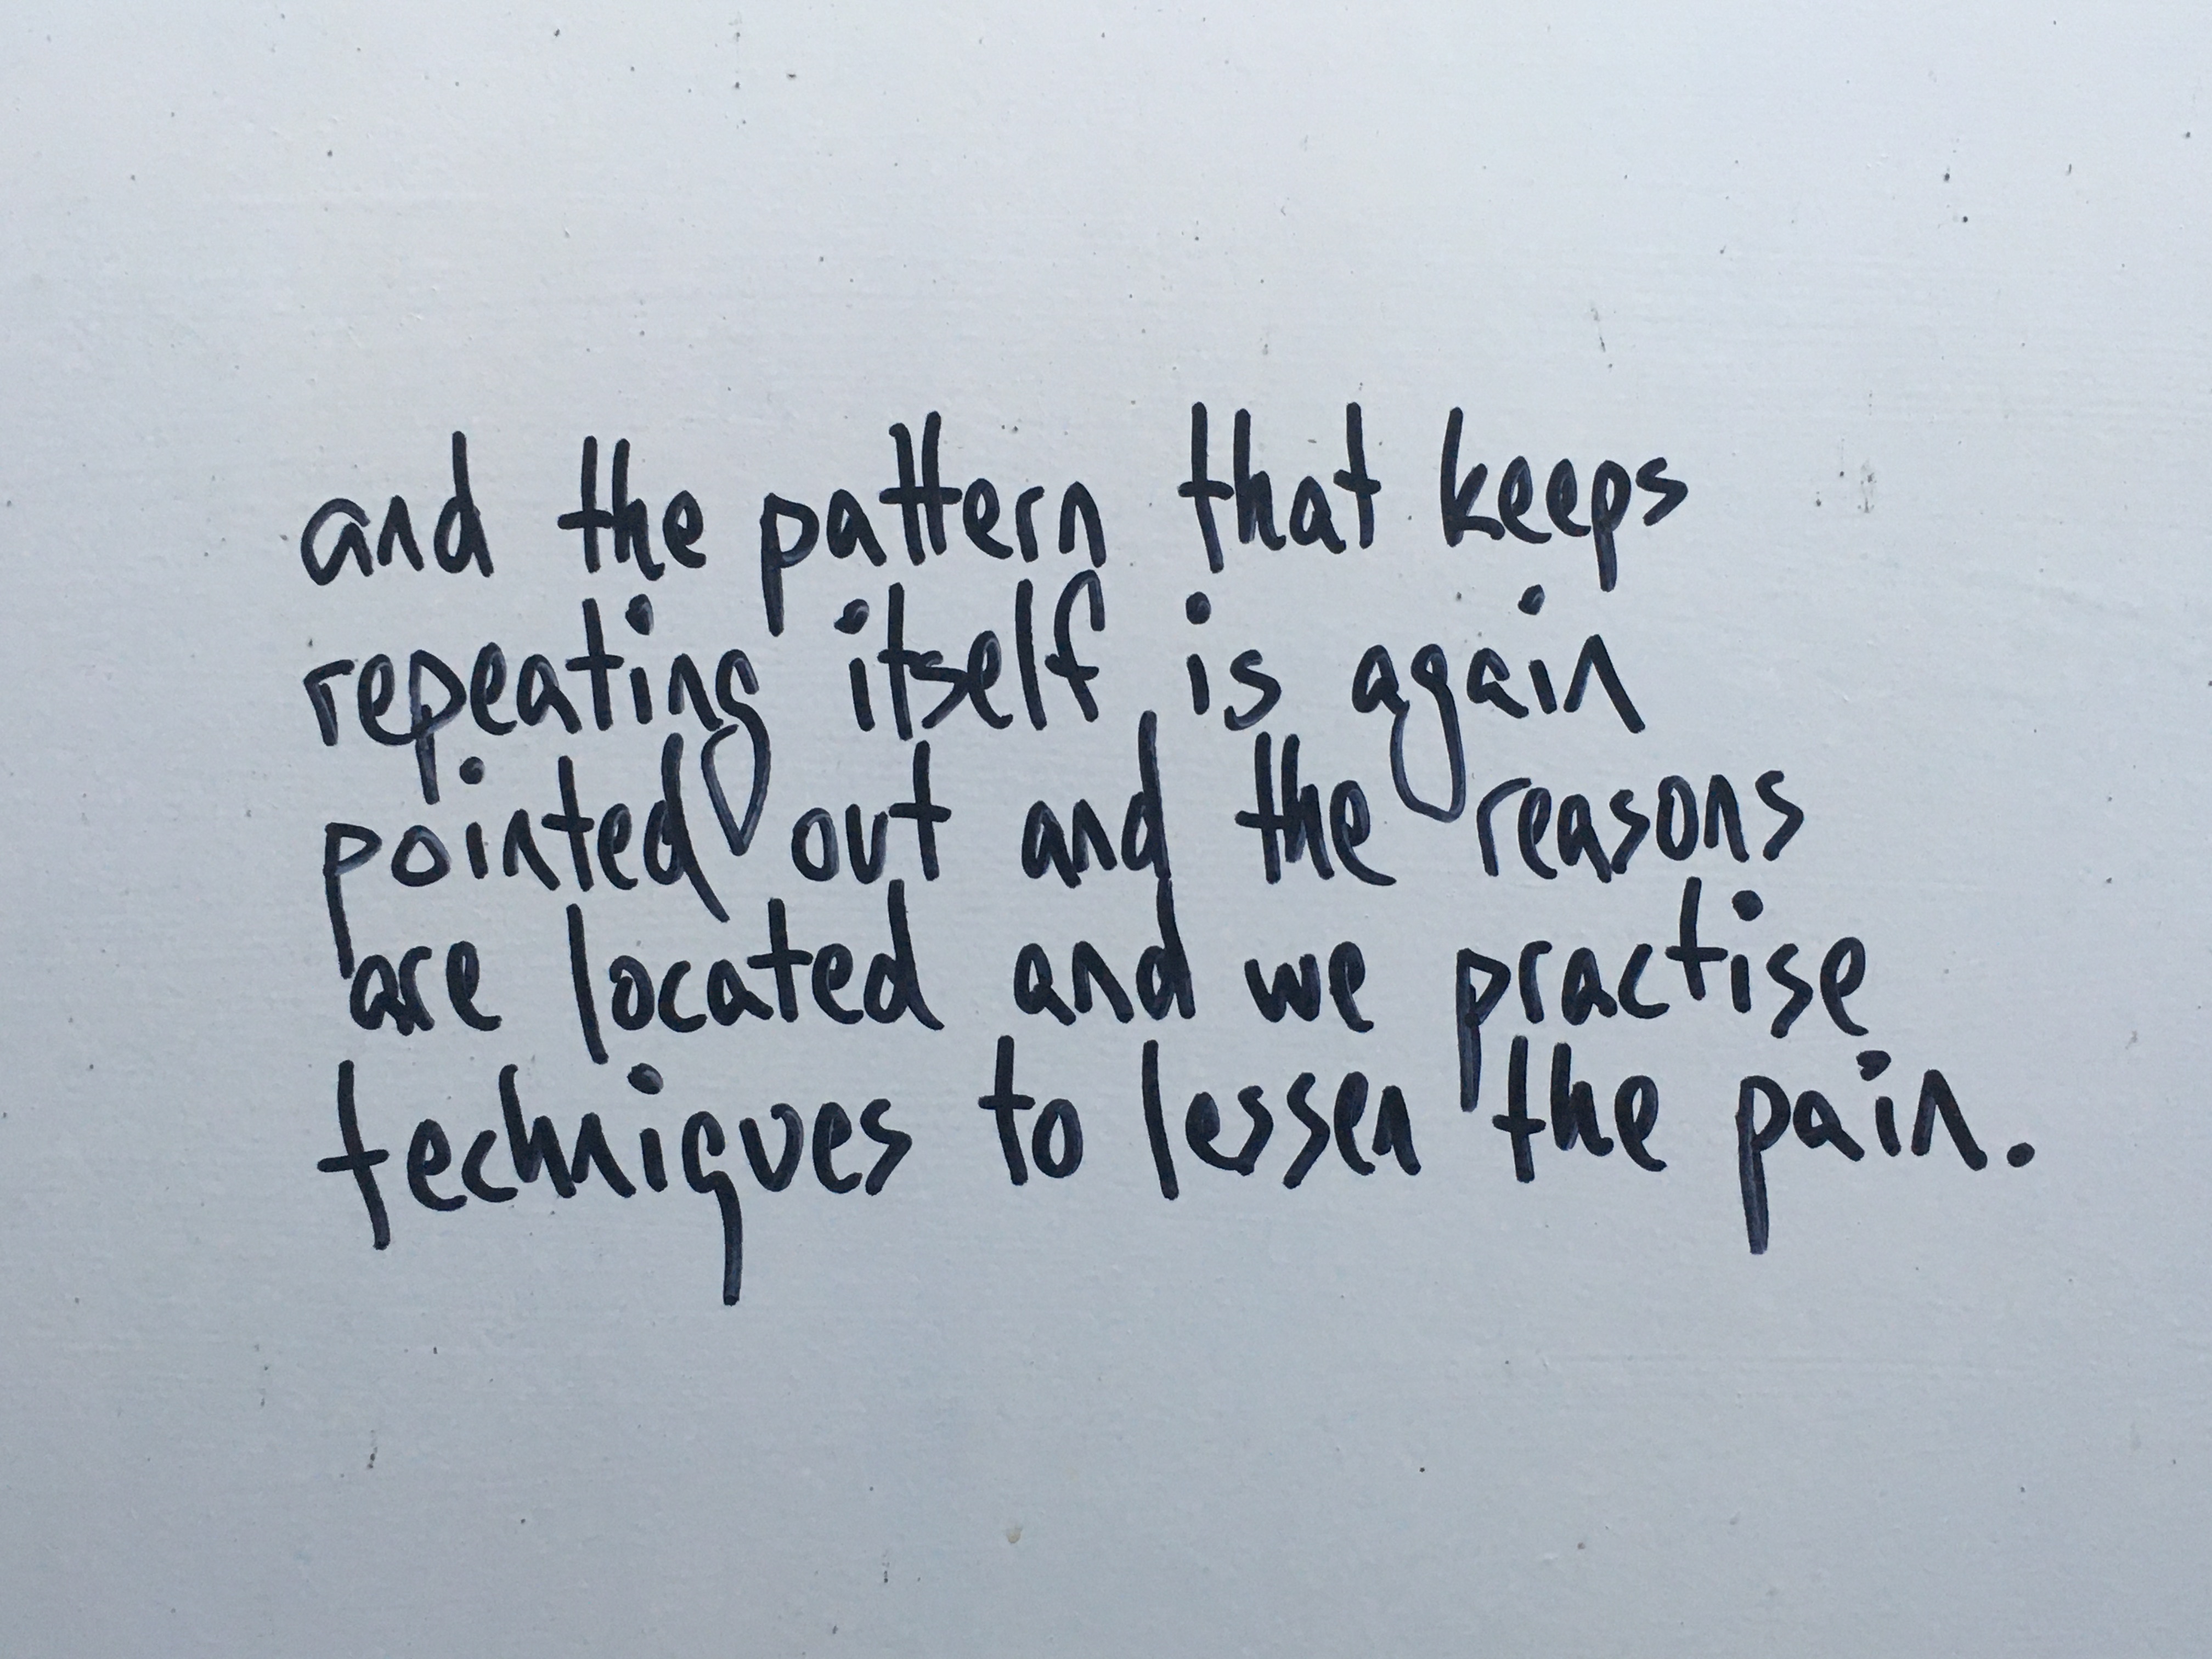 and the pattern that keeps
repeating itself is again
pointed out and the reasons
are located and we practise
techniques to lessen the pain.